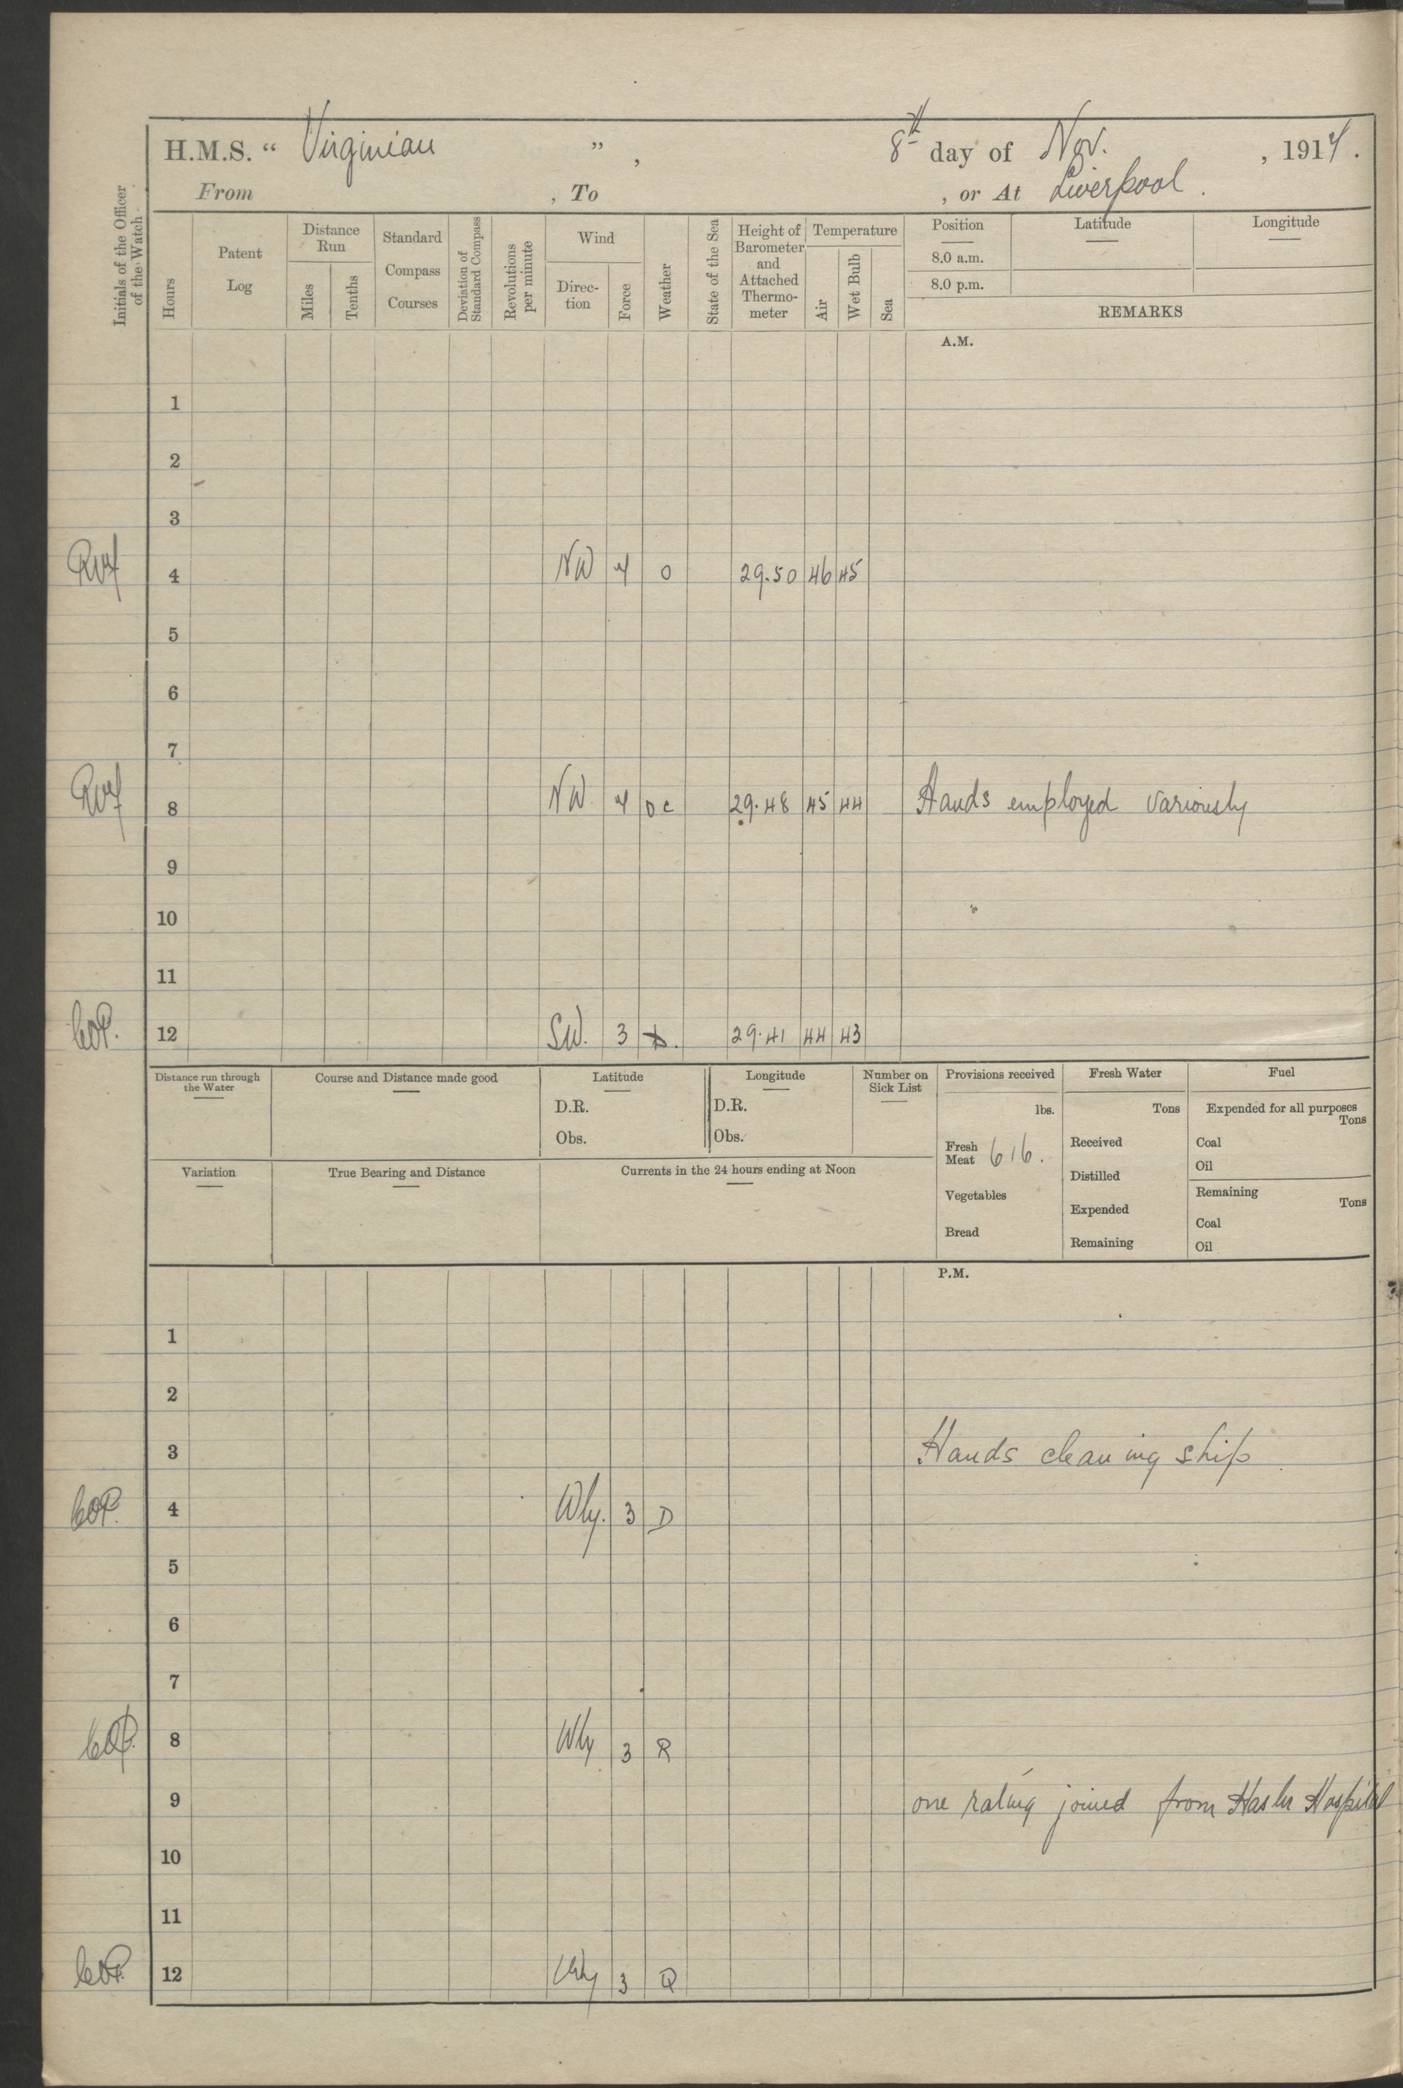 H.M.S. " Virginian ", 8th day of Nov. , 1914.
From , To , or At Liverpool.
Initials of the Officer of the Watch
Hours
Patent Log
Distance Run
Miles
Tenths
Standard Compass Courses
Deviation of Standard Compass
Revolutions per minute
Wind
Direction
Force
Weather
State of the Sea
Height of Barometer and Attached Thermometer
Temperature
Air
Wet Bulb
Sea
Position Latitude Longitude
8.0 a.m.
8.0 p.m.
REMARKS
A.M.
1
2
3
4 NW 4 O 29.50 46 45
5
6
7
8 NW. 4 oc 29.48 45 44 Hands employed variously
9
10
11
12 SW. 3 29.41 44 43
Distance run through the Water
Course and Distance made good
Latitude
D.R.
Obs.
Longitude
D.R.
Obs.
Number on Sick List
Provisions received
lbs.
Fresh Meat 616.
Vegetables
Bread
Fresh Water
Tons
Received
Distilled
Expended
Remaining
Fuel
Expended for all purposes
Tons
Coal
Oil
Remaining
Tons
Coal
Oil
Variation
True Bearing and Distance
Currents in the 24 hours ending at Noon
P.M.
1
2
3 Hands cleaning ship
4 Wly. 3 D
5
6
7
8 Wly 3 R
9 one rating joined from Haslar Hospital
10
11
12 Wly 3